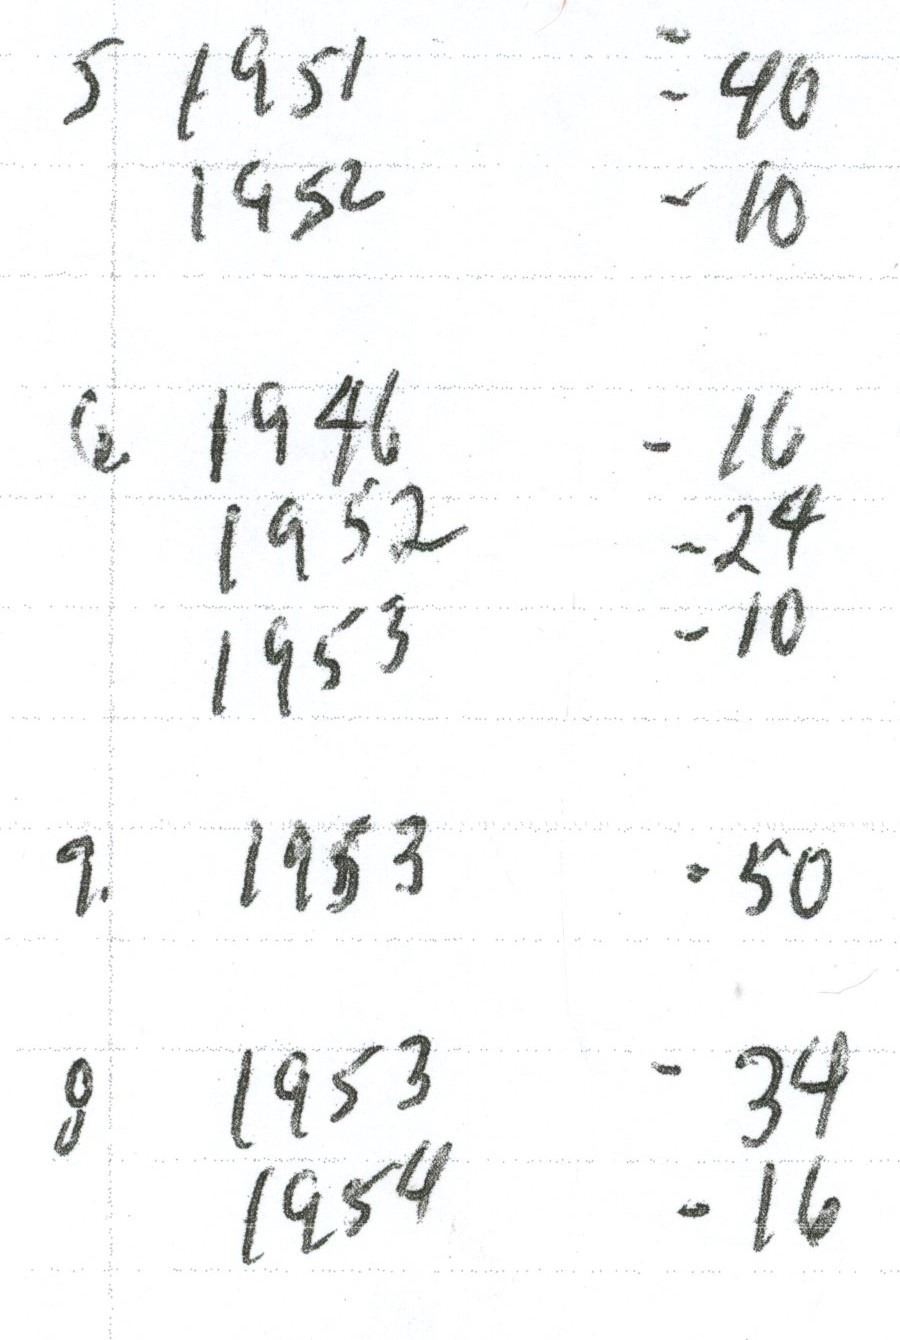 5 1951 - 40
1952 - 10
6. 1946 - 16
1952 - 24
1953 - 10
7. 1953 - 50
8 1953 - 34
1954 - 16